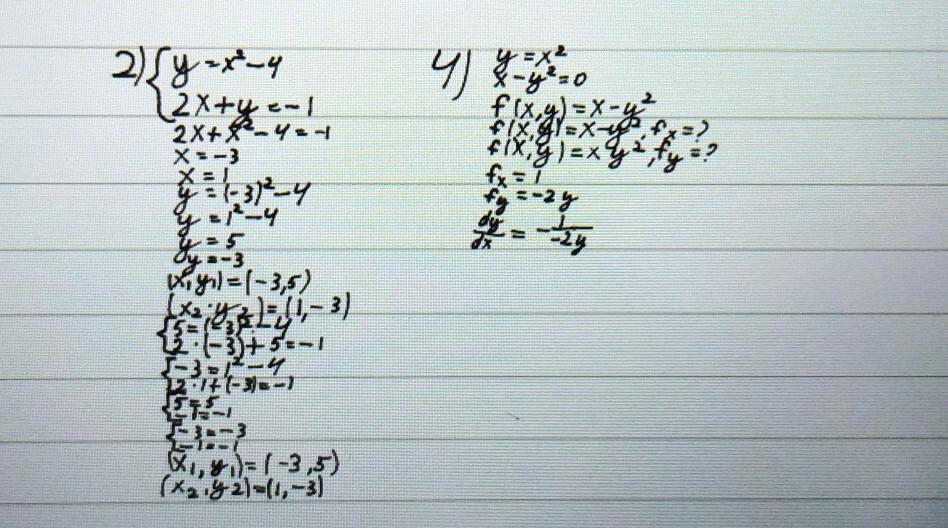 2) y = x² - 4
2x + y = -1
2x + x² - 4 = -1
x = -3
x = 1
y = (-3)² - 4
y = 1² - 4
y = 5
y = -3
(x, y₁) = (-3,5)
(x₂, y₂) = (1, -3)
5 = (-3)² - 4
2 · (-3) + 5 = -1
-3 = 1² - 4
2 · 1 + (-3) = -1
5 = 5
-1 = -1
-3 = -3
-1 = -1
(x₁, y₁) = (-3,5)
(x₂, y2) = (1, -3)
4) y = x²
x - y² = 0
f(x,y) = x - y²
f(x,y) = x - y², fx = ?
f(x,y) = x y², fy = ?
fx = 1
fy = -2y
dy/dx = - 1/-2y